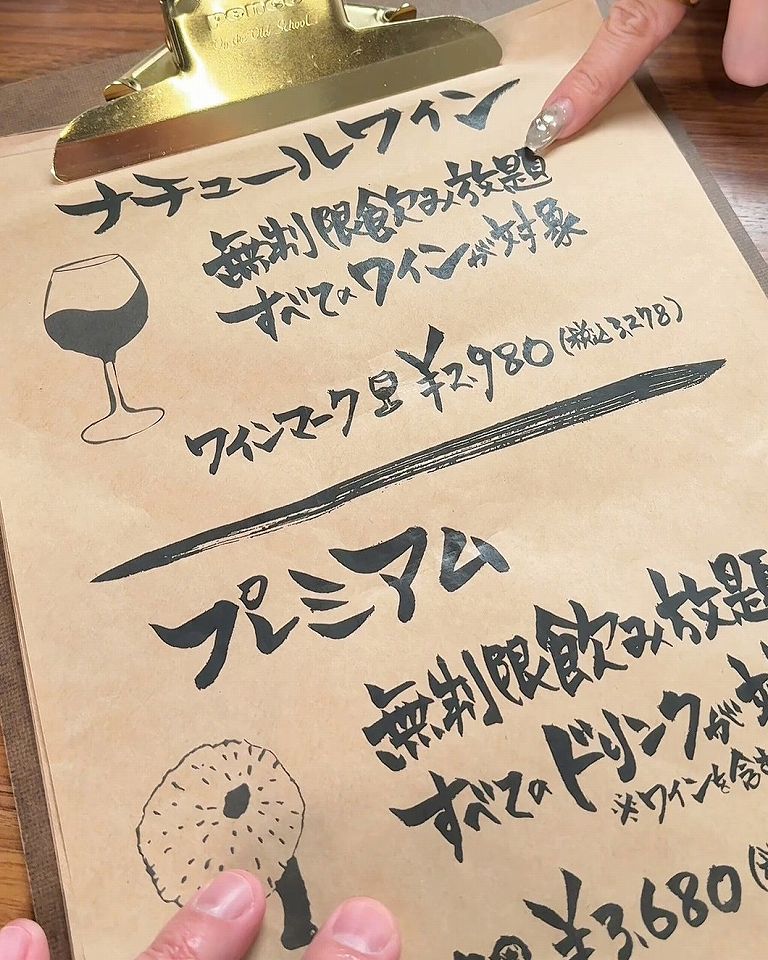 PENCO
On the Old School
ナチュールワイン
無制限飲み放題
すべてのワインが対象
ワインマーク ¥2,980(税込3,278)
プレミアム
無制限飲み放題
すべてのドリンクが対
※ワインを含
¥3,680(